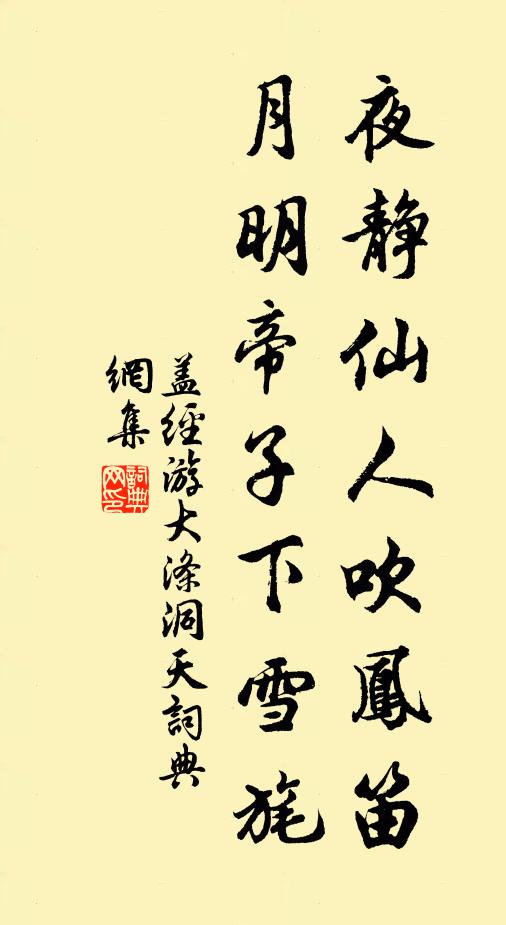 夜靜仙人吹鳳笛
月明帝子下雪旄
盖經游大涤洞天詞典
網集
詞典
网印